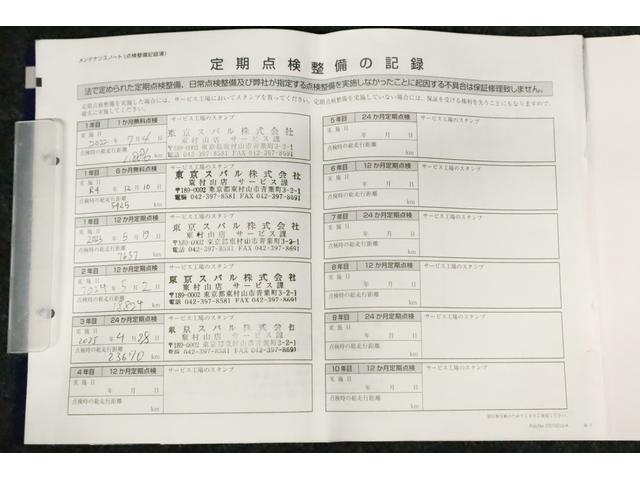 メンテナンスノート(点検整備記録簿)
定期点検整備の記録
法で定められた定期点検整備、日常点検整備及び弊社が指定する点検整備を実施しなかったことに起因する不具合は保証修理致しません。
定期点検整備を実施した場合には、サービス工場においてスタンプを貰ってください。定期点検整備を実施していない場合には、保証を受ける権利を失うことにもなりますので、
確実に実施してください。
1年目 1か月無料点検 サービス工場のスタンプ
実施日
2022年7月4日
点検時の総走行距離
km
東京スバル株式会社
東村山店 サービス課
〒189-0002 東京都東村山市青葉町3-2-1
電話 042-397-8581 FAX 042-397-8691
1年目 6か月無料点検 サービス工場のスタンプ
実施日
R4年12月10日
点検時の総走行距離
5425 km
東京スバル株式会社
東村山店 サービス課
〒189-0002 東京都東村山市青葉町3-2-1
電話 042-397-8581 FAX 042-397-8691
1年目 12か月定期点検 サービス工場のスタンプ
実施日
2023年5月19日
点検時の総走行距離
7657 km
東京スバル株式会社
東村山店 サービス課
〒189-0002 東京都東村山市青葉町3-2-1
電話 042-397-8581 FAX 042-397-8691
2年目 12か月定期点検 サービス工場のスタンプ
実施日
2024年5月2日
点検時の総走行距離
km
東京スバル株式会社
東村山店 サービス課
〒189-0002 東京都東村山市青葉町3-2-1
電話 042-397-8581 FAX 042-397-8691
3年目 24か月定期点検 サービス工場のスタンプ
実施日
2025年4月28日
点検時の総走行距離
23670 km
東京スバル株式会社
東村山店 サービス課
〒189-0002 東京都東村山市青葉町3-2-1
電話 042-397-8581 FAX 042-397-8691
4年目 12か月定期点検 サービス工場のスタンプ
実施日
年 月 日
点検時の総走行距離
km
5年目 24か月定期点検 サービス工場のスタンプ
実施日
年 月 日
点検時の総走行距離
km
6年目 12か月定期点検 サービス工場のスタンプ
実施日
年 月 日
点検時の総走行距離
km
7年目 24か月定期点検 サービス工場のスタンプ
実施日
年 月 日
点検時の総走行距離
km
8年目 12か月定期点検 サービス工場のスタンプ
実施日
年 月 日
点検時の総走行距離
km
9年目 24か月定期点検 サービス工場のスタンプ
実施日
年 月 日
点検時の総走行距離
km
10年目 12か月定期点検 サービス工場のスタンプ
実施日
年 月 日
点検時の総走行距離
km